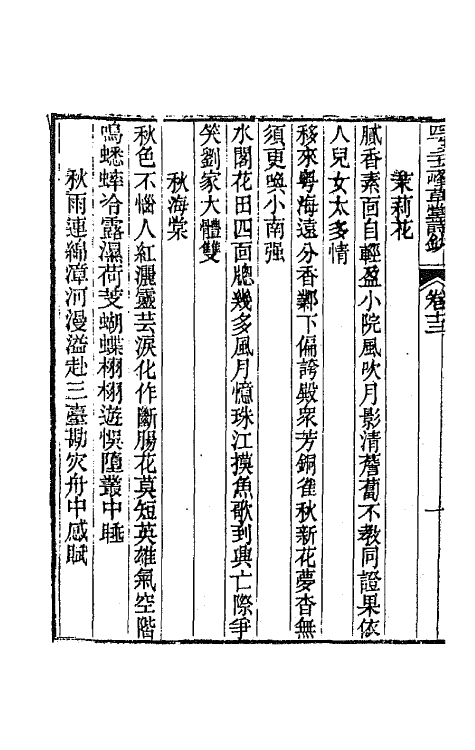 峰草堂詩鈔　卷　一
茉莉花
膩香素面自輕盈小院風吹月影清薝蔔不教同證果依
人兒女太多情
移來粵海遠分香鄴下偏誇殿衆芳銅雀秋新花夢杳無
須更喚小南强
水閣花田四面牕幾多風月憶珠江摸魚歌到興亡際爭
笑劉家大體雙
秋海棠
秋色不惱人紅灑靈芸淚化作斷腸花莫短英雄氣空階
鳴蟋蟀冷露濕荷芰蝴蝶栩栩遊悞墮叢中睡
秋雨連綿漳河漫溢赴三臺勘災舟中感賦